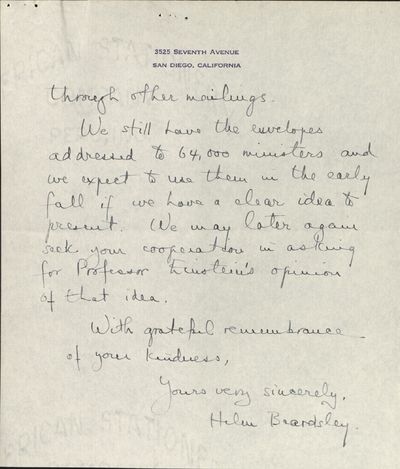 3525 SEVENTH AVENUE
SAN DIEGO, CALIFORNIA
through other mailings.
We still have the envelopes
addressed to 64,000 ministers and
we expect to use them in the early
fall if we have a clear idea to
present. We may later again
seek your cooperation in asking
for Professor Einstein's opinion
of that idea.
With grateful remembrance
of your kindness,
Yours very sincerely,
Helen Beardsley.